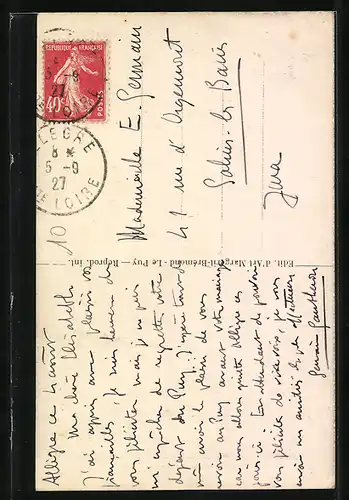 REPUBLIQUE FRANÇAISE
40c
POSTES
ALLEGRE
8 *
5-9
27
HTE LOIRE
10
Mademoiselle E. Germain
47 rue d'Orgemont
Salins-les-Bains
Jura
Edit. d'Art Margerit-Brémond - Le Puy — Reprod. int.
Allègre ce 4 août
Ma chère Elisabeth
J'ai appris avec plaisir vos
fiançailles, je suis heureux de
vous féliciter mais je ne puis
m'empêcher de regretter votre
départ du Puy. J'espère tout de
même avoir le plaisir de vous
revoir au Puy avant votre mariage
car nous allons quitter Allègre ces
jours-ci. En attendant de pouvoir
vous féliciter de vive voix, je vous
envoie mes amitiés les plus affectueuses
Germaine